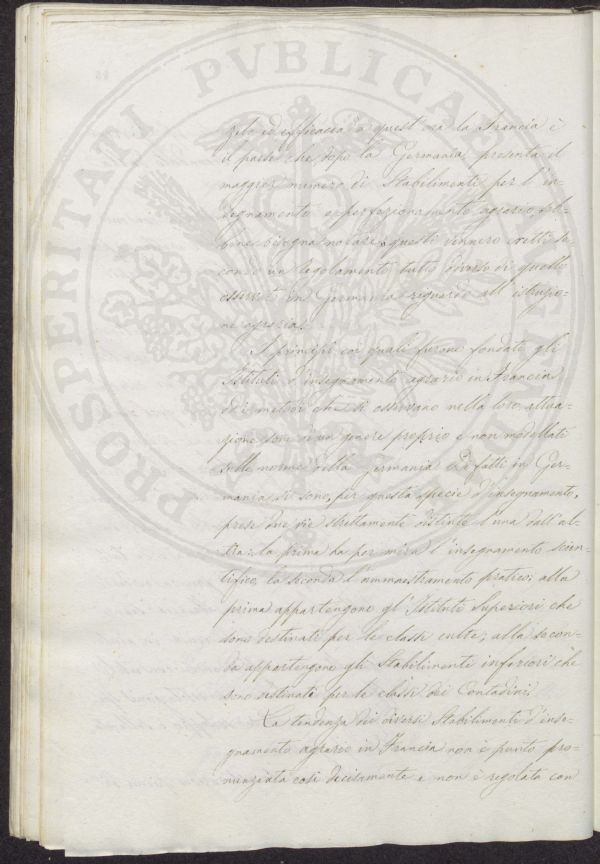 zelo ed efficacia a quest'ora la Francia è
il paese che dopo la Germania presenta il
maggior numero di Stabilimenti per l'in-
segnamento e perfezionamento agrario,
bene bisogna notare questi vennero eretti se-
condo un regolamento tutto diverso di quello
osservato in Germania riguardo all'istruzio-
ne agraria.
I principii coi quali furono fondati gli
Istituti d'insegnamento agrario in Francia
ed i metodi che si osservano nella loro attua-
zione sono di un genere proprio e non modellati
sulle norme della Germania. Di fatti in Ger-
mania si sono, per questa specie d'insegnamento,
prese due vie strettamente distinte l'una dall'al-
tra: la prima ha per mira l'insegnamento scien-
tifico, la seconda l'ammaestramento pratico; alla
prima appartengono gl'Istituti Superiori che
sono destinati per le classi culte; alla secon-
da appartengono gli Stabilimenti inferiori che
sono destinati per le classi dei Contadini.
La tendenza dei diversi Stabilimenti d'inse-
gnamento agrario in Francia non è punto pro-
nunziata così decisamente e non è regolata con
PROSPERITATI PVBLICAE